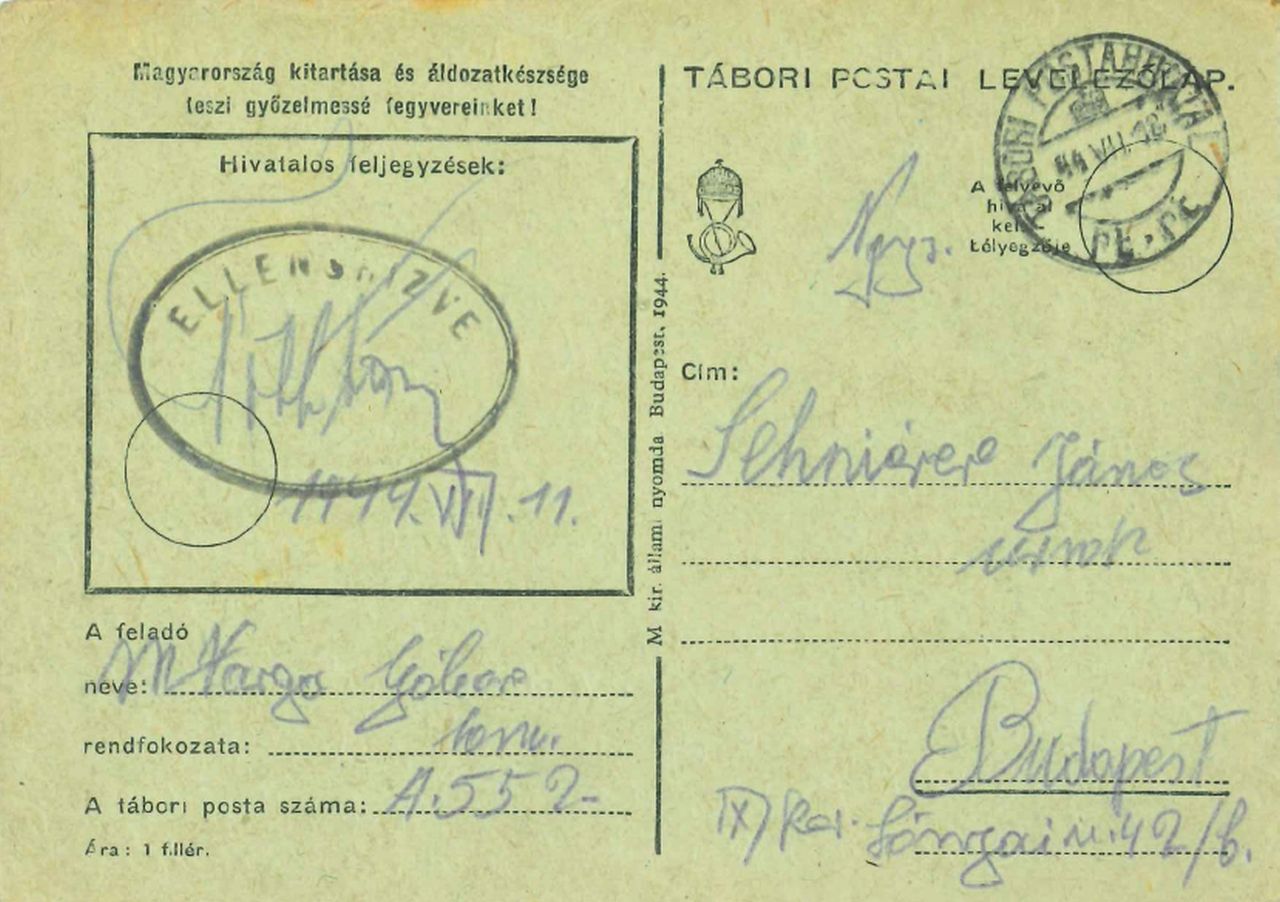 Magyarország kitartása és áldozatkészsége
teszi győzelmessé fegyvereinket!
Hivatalos feljegyzések:
ELLENŐRIZVE
1944.VII.11.
A feladó
neve: Varga Gábor
rendfokozata:
A tábori posta száma: A.552
Ára: 1 fillér.
M kir. állami nyomda Budapest, 1944.
TÁBORI POSTAI LEVELEZŐLAP.
TÁBORI POSTAHIVATAL
44 VII. 12
A felvevő
hivatal
kelet-
bélyegzője
Cím:
János
úrnak
Budapest
IX/ker. 42/b.